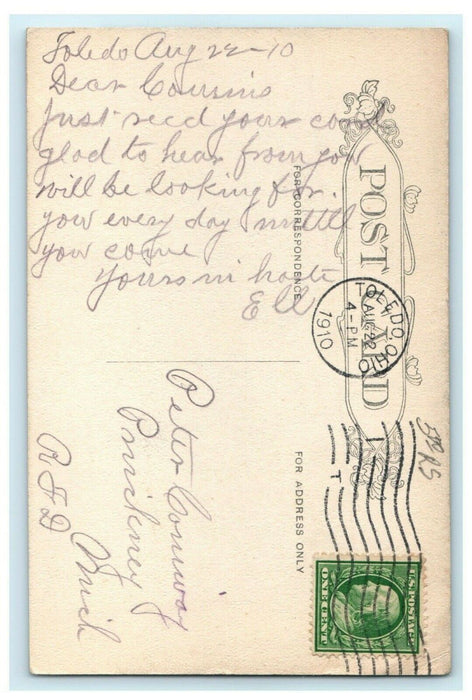 Toledo Aug 22-10
Dear Cousins
Just recd your card
glad to hear from you
will be looking for
you every day untill
you come
Yours in haste
Ell
FOR CORRESPONDENCE
POST CARD
TOLEDO, OHIO
AUG 22
4-PM
1910
Peter Conway
Pinckney
Mich
R F D
FOR ADDRESS ONLY
T
1
U.S. POSTAGE
ONE CENT